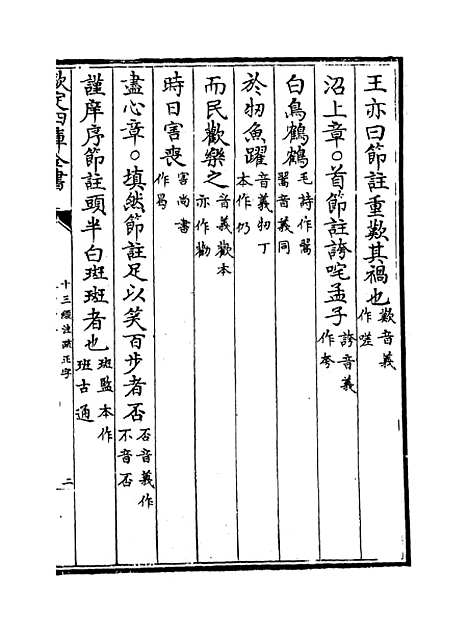 王亦曰節註重歎其禍也歎音義作嗟
沼上章○首節註誇咤孟子誇音義作夸
白鳥鶴鶴毛詩作翯翯音義同
於牣魚躍音義牣丁本作仞
而民歡樂之音義歡本亦作勸
時日害喪害尚書作曷
盡心章○填然節註足以笑百步者否否音義作不音否
謹庠序節註頭半白斑斑者也斑監本作班古通
欽定四庫全書
十三經注疏正字
二